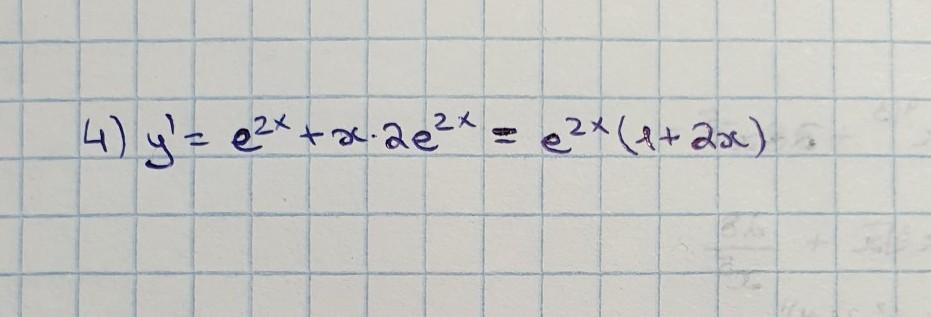 4) y' = e^{2x} + x · 2e^{2x} = e^{2x} (1 + 2x)